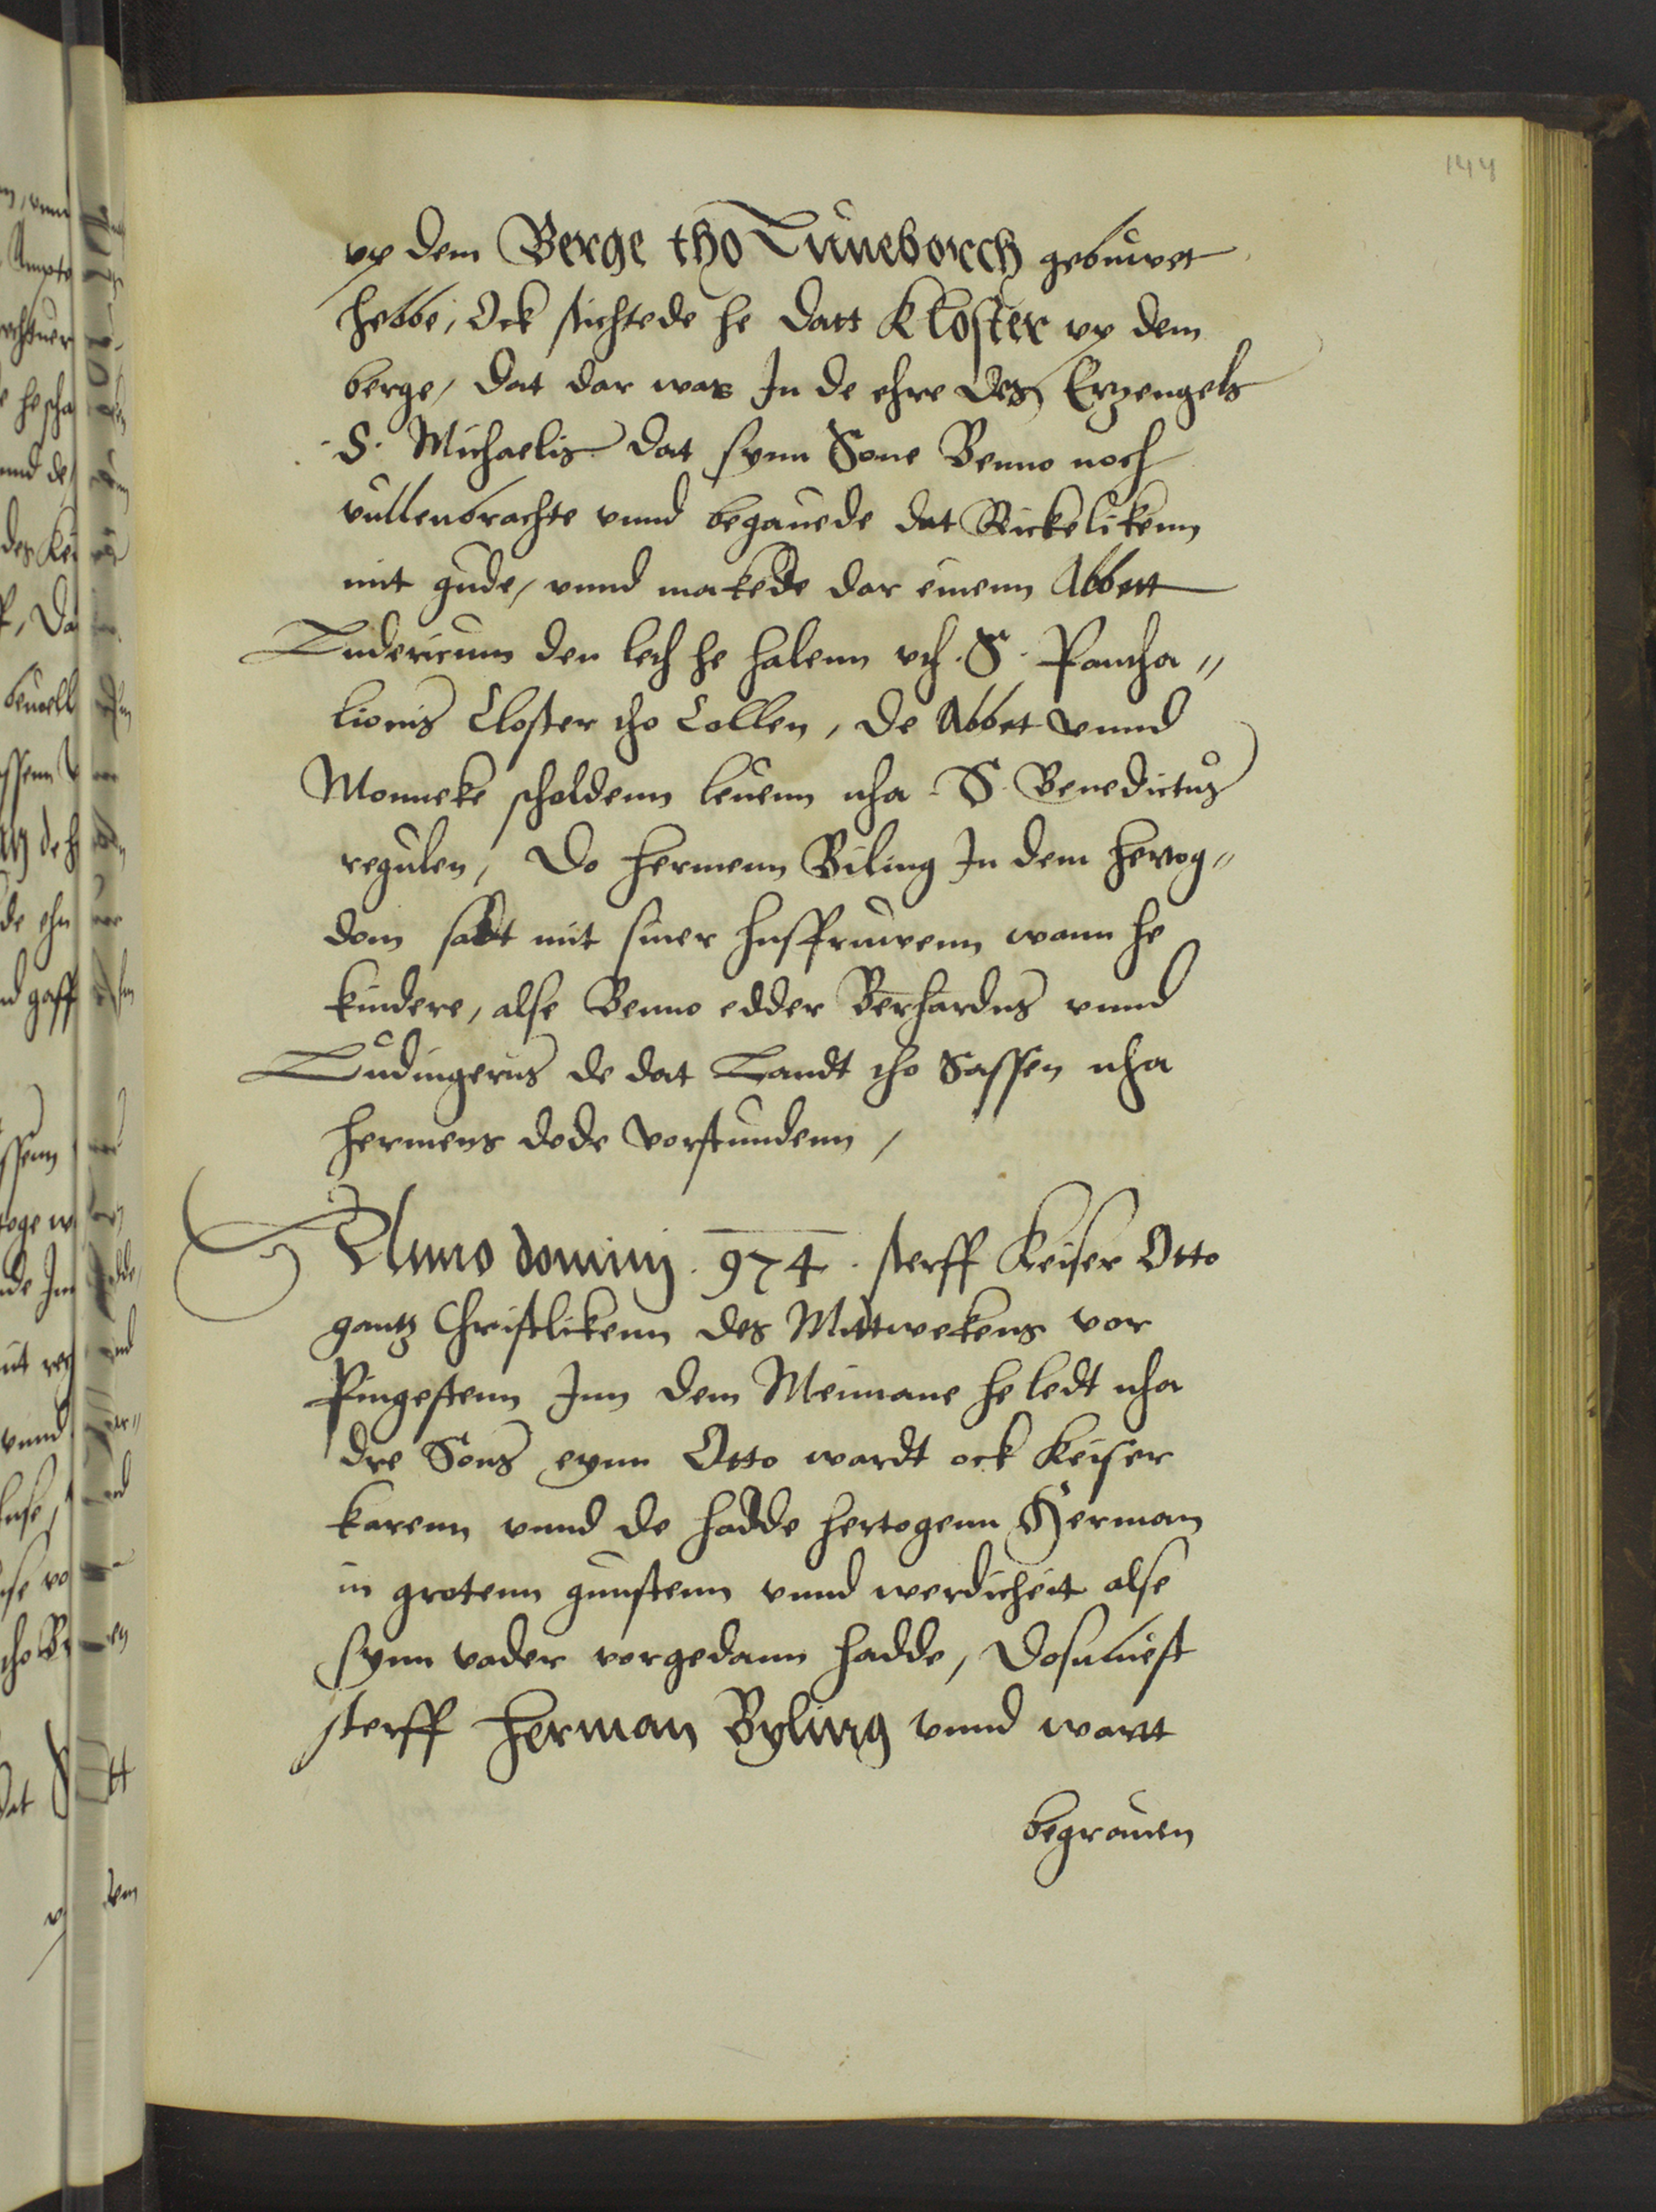 144
vp dem Berge tho Luneborch gebuwet
hebbe, Ock stichtede he datt Kloster vp dem
berge, dat dar was In de ehre des Erzengels
S. Michaelis dat synn Sone Benno noch
vullenbrachte vnnd begauede dat Rickelikenn
mit gude, vnnd makede dar einenn Abbett
Ludericum den leth he halenn vth S. Pantha„
lionis Closter tho Collen, de Abbet vnnd
Monneke scholdenn leuenn nha S. Benedictus
regulen, Do Hermenn Biling In dem Hertog„
dom satt mit siner husffruwenn wann he
kindere, alse Benno edder Berhardus vnnd
Ludingerus de dat Landt tho Sassen nha
Hermens dode vorstundenn,
Anno dominj . 974 . sterff Keiser Otto
gantz Christlikenn des Mittwekens vor
Pingestenn Inn dem Meimane he ledt nha
dre Sons eynn Otto wardt ock Keiser
karenn vnnd de hadde hertogenn Herman
in grotenn gunstenn vnnd werdicheit alse
synn vader vorgedann hadde, dosuluest
sterff Herman Byling vnnd wartt
begrauen